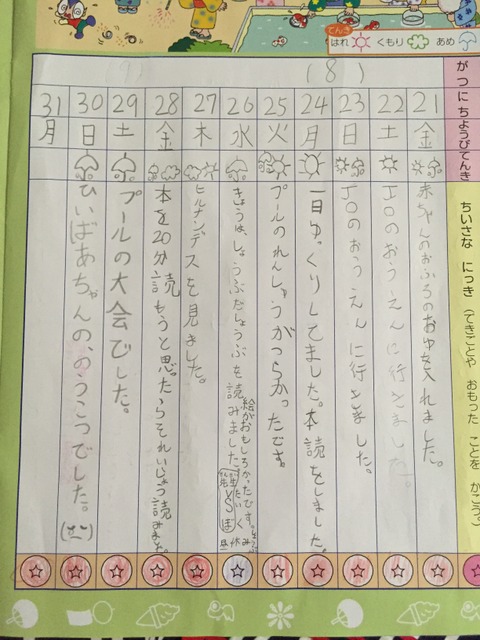 てんき
はれ くもり あめ
（8）
がつ
にち
ようび
てんき
ちいさな にっき（てきごとや おもった ことを かこう。）
21 金 赤ちゃんのおふろのおゆを入れました。
22 土 JOのおうえんに行きました。
23 日 JOのおうえんに行きました。
24 月 一日ゆっくりしてました。本読をしました。
25 火 プールのれんしゅうがつらかったです。
26 水 きょうは、しょうぶだしょうぶを読みました
絵がおもしろかったです。
27 木 ヒルナンデスを見ました。
28 金 本を20分読もうと思ったらそれいじょう読みました。
29 土 プールの大会でした。
30 日 ひいばあちゃんの、のうこつでした。
31 月